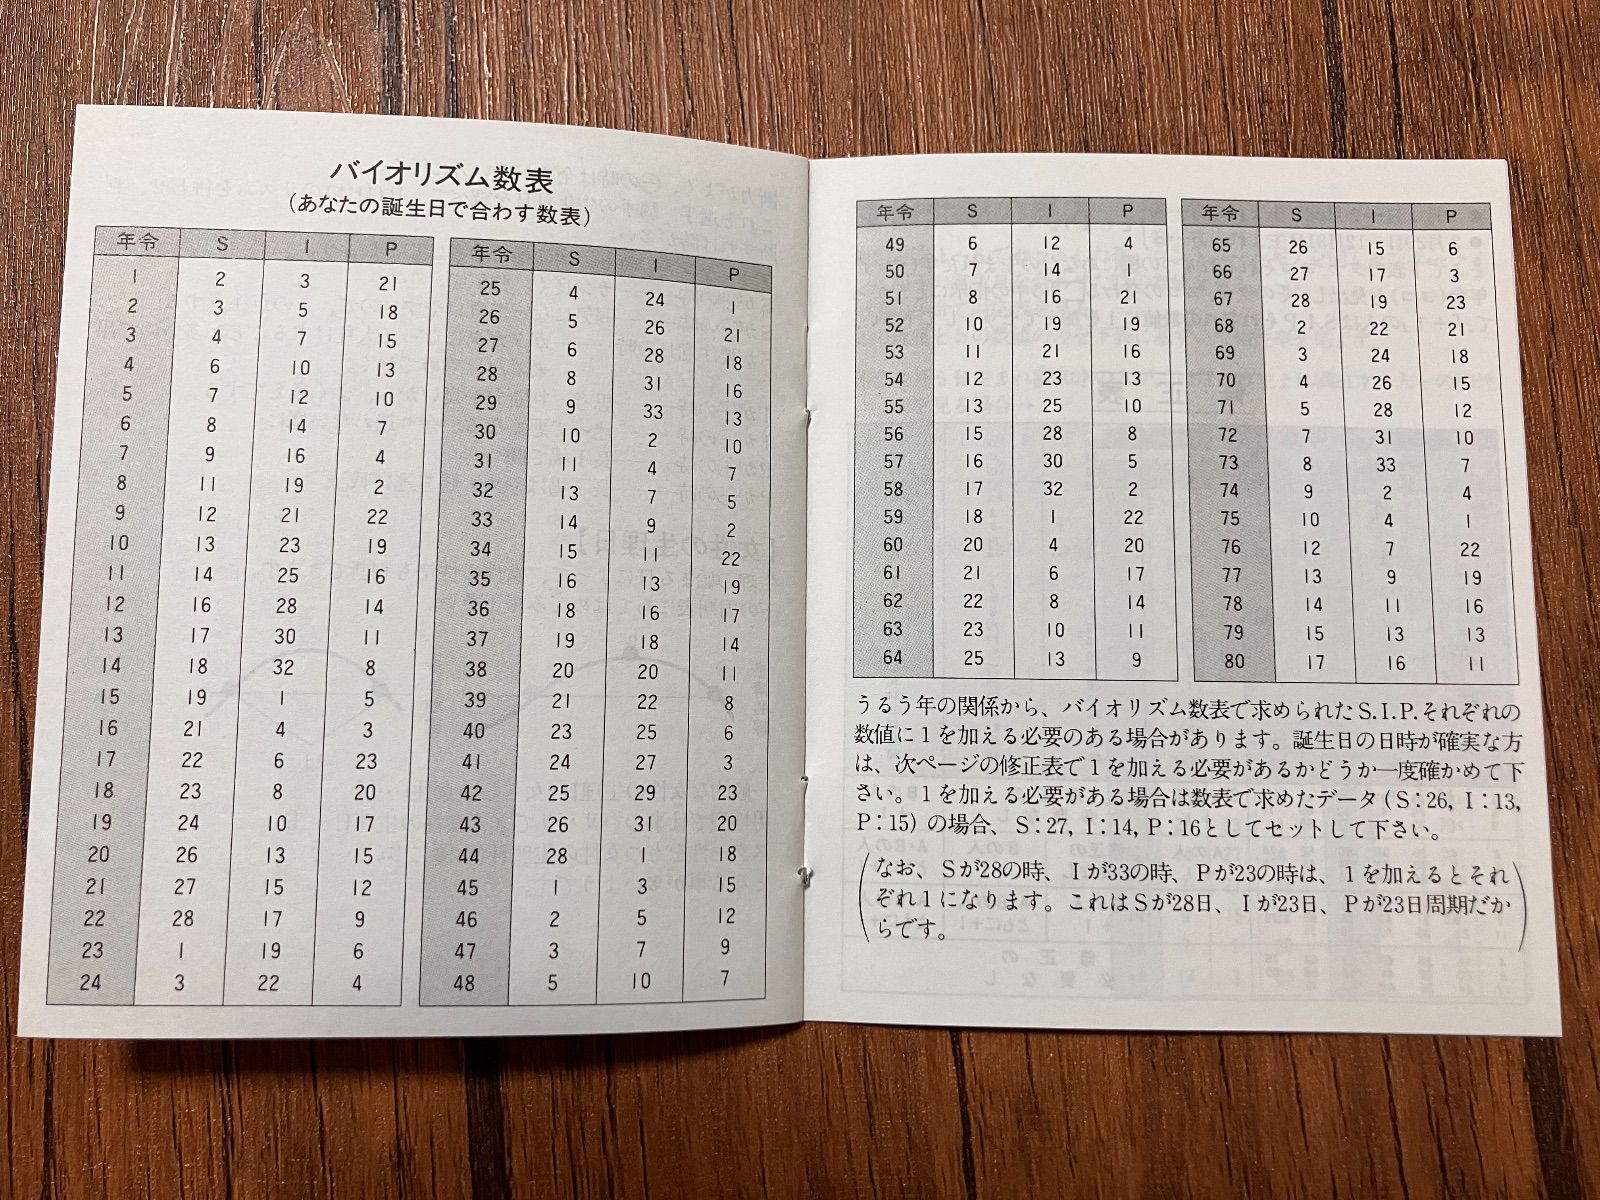 バイオリズム数表
(あなたの誕生日で合わす数表)
年令 S I P
1 2 3 21
2 3 5 18
3 4 7 15
4 6 10 13
5 7 12 10
6 8 14 7
7 9 16 4
8 11 19 2
9 12 21 22
10 13 23 19
11 14 25 16
12 16 28 14
13 17 30 11
14 18 32 8
15 19 1 5
16 21 4 3
17 22 6 23
18 23 8 20
19 24 10 17
20 26 13 15
21 27 15 12
22 28 17 9
23 1 19 6
24 3 22 4
年令 S I P
25 4 24 1
26 5 26 21
27 6 28 18
28 8 31 16
29 9 33 13
30 10 2 10
31 11 4 7
32 13 7 5
33 14 9 2
34 15 11 22
35 16 13 19
36 18 16 17
37 19 18 14
38 20 20 11
39 21 22 8
40 23 25 6
41 24 27 3
42 25 29 23
43 26 31 20
44 28 1 18
45 1 3 15
46 2 5 12
47 3 7 9
48 5 10 7
年令 S I P
49 6 12 4
50 7 14 1
51 8 16 21
52 10 19 19
53 11 21 16
54 12 23 13
55 13 25 10
56 15 28 8
57 16 30 5
58 17 32 2
59 18 1 22
60 20 4 20
61 21 6 17
62 22 8 14
63 23 10 11
64 25 13 9
年令 S I P
65 26 15 6
66 27 17 3
67 28 19 23
68 2 22 21
69 3 24 18
70 4 26 15
71 5 28 12
72 7 31 10
73 8 33 7
74 9 2 4
75 10 4 1
76 12 7 22
77 13 9 19
78 14 11 16
79 15 13 13
80 17 16 11
うるう年の関係から、バイオリズム数表で求められたS.I.P.それぞれの
数値に1を加える必要のある場合があります。誕生日の日時が確実な方
は、次ページの修正表で1を加える必要があるかどうか一度確かめて下
さい。1を加える必要がある場合は数表で求めたデータ(S:26, I:13,
P:15)の場合、S:27, I:14, P:16としてセットして下さい。
(なお、Sが28の時、Iが33の時、Pが23の時は、1を加えるとそれ
ぞれ1になります。これはSが28日、Iが23日、Pが23日周期だか
らです。)